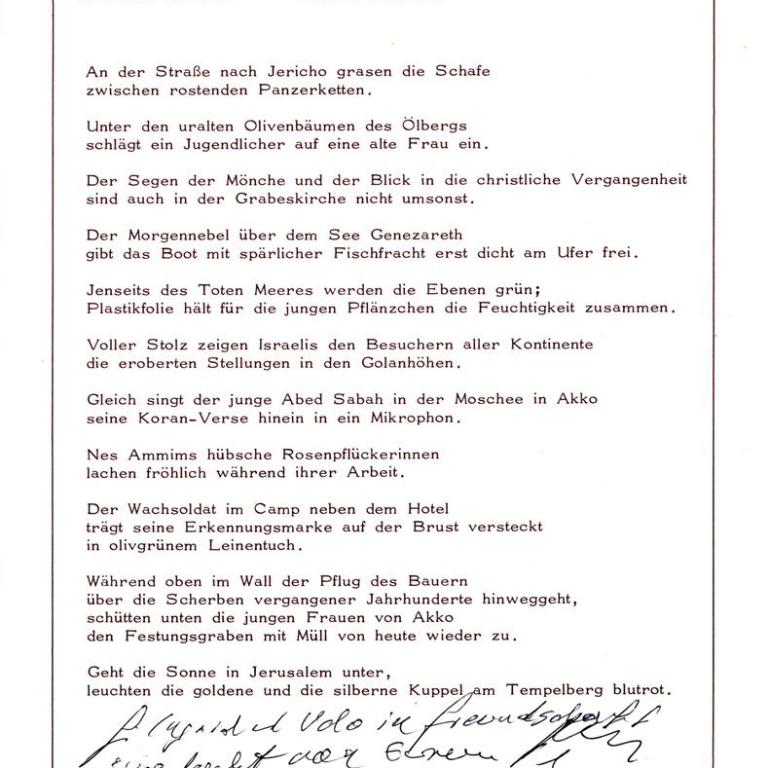 An der Straße nach Jericho grasen die Schafe
zwischen rostenden Panzerketten.
Unter den uralten Olivenbäumen des Ölbergs
schlägt ein Jugendlicher auf eine alte Frau ein.
Der Segen der Mönche und der Blick in die christliche Vergangenheit
sind auch in der Grabeskirche nicht umsonst.
Der Morgennebel über dem See Genezareth
gibt das Boot mit spärlicher Fischfracht erst dicht am Ufer frei.
Jenseits des Toten Meeres werden die Ebenen grün;
Plastikfolie hält für die jungen Pflänzchen die Feuchtigkeit zusammen.
Voller Stolz zeigen Israelis den Besuchern aller Kontinente
die eroberten Stellungen in den Golanhöhen.
Gleich singt der junge Abed Sabah in der Moschee in Akko
seine Koran-Verse hinein in ein Mikrophon.
Nes Ammims hübsche Rosenpflückerinnen
lachen fröhlich während ihrer Arbeit.
Der Wachsoldat im Camp neben dem Hotel
trägt seine Erkennungsmarke auf der Brust versteckt
in olivgrünem Leinentuch.
Während oben im Wall der Pflug des Bauern
über die Scherben vergangener Jahrhunderte hinweggeht,
schütten unten die jungen Frauen von Akko
den Festungsgraben mit Müll von heute wieder zu.
Geht die Sonne in Jerusalem unter,
leuchten die goldene und die silberne Kuppel am Tempelberg blutrot.
f. Ingrid u Udo in Freundschaft